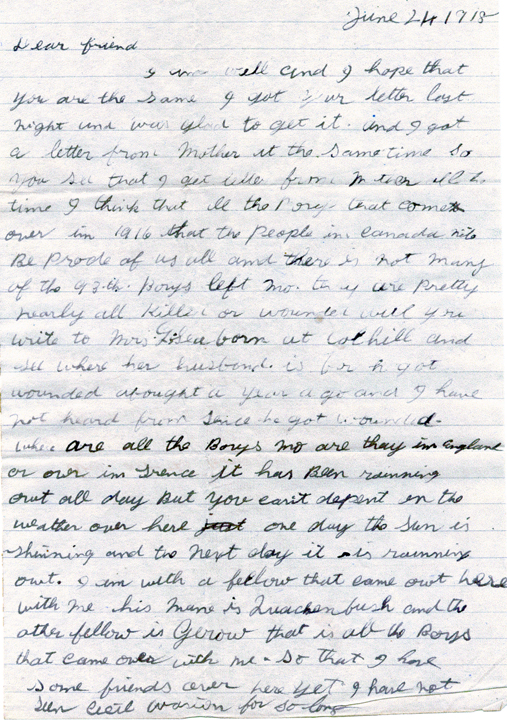 June 24 1918
Dear friend
I im well and I hope that
you are the same I got your letter last
night and was glad to get it. and I got
a letter from Mother at the same time so
you see that I get
time I think that all the Borys that comes
over in 1916 that the people in Canada
Be Prode of us all and there is not many
of the 93.th. Borys left mo. they are Pretty
nearly all Killed or wounded will you
write to Mrs born at Colhill and
see where her husband. is for h got
wounded abought a year ago and I have
not heard from since he got wounded.
where are all the Borys mo are thay in england
or over in Frence it has Been rainning
owt all day But you can't depent en the
weather over here just one day the sun is
shinning and the next day it is rainning
owt. I im with a fellow that came owt here
with me his name is Quackenbush and the
other fellow is Gerow that is all the Borys
that came over with me - so that I have
some friends over here yet I have not
seen Cecil for so long